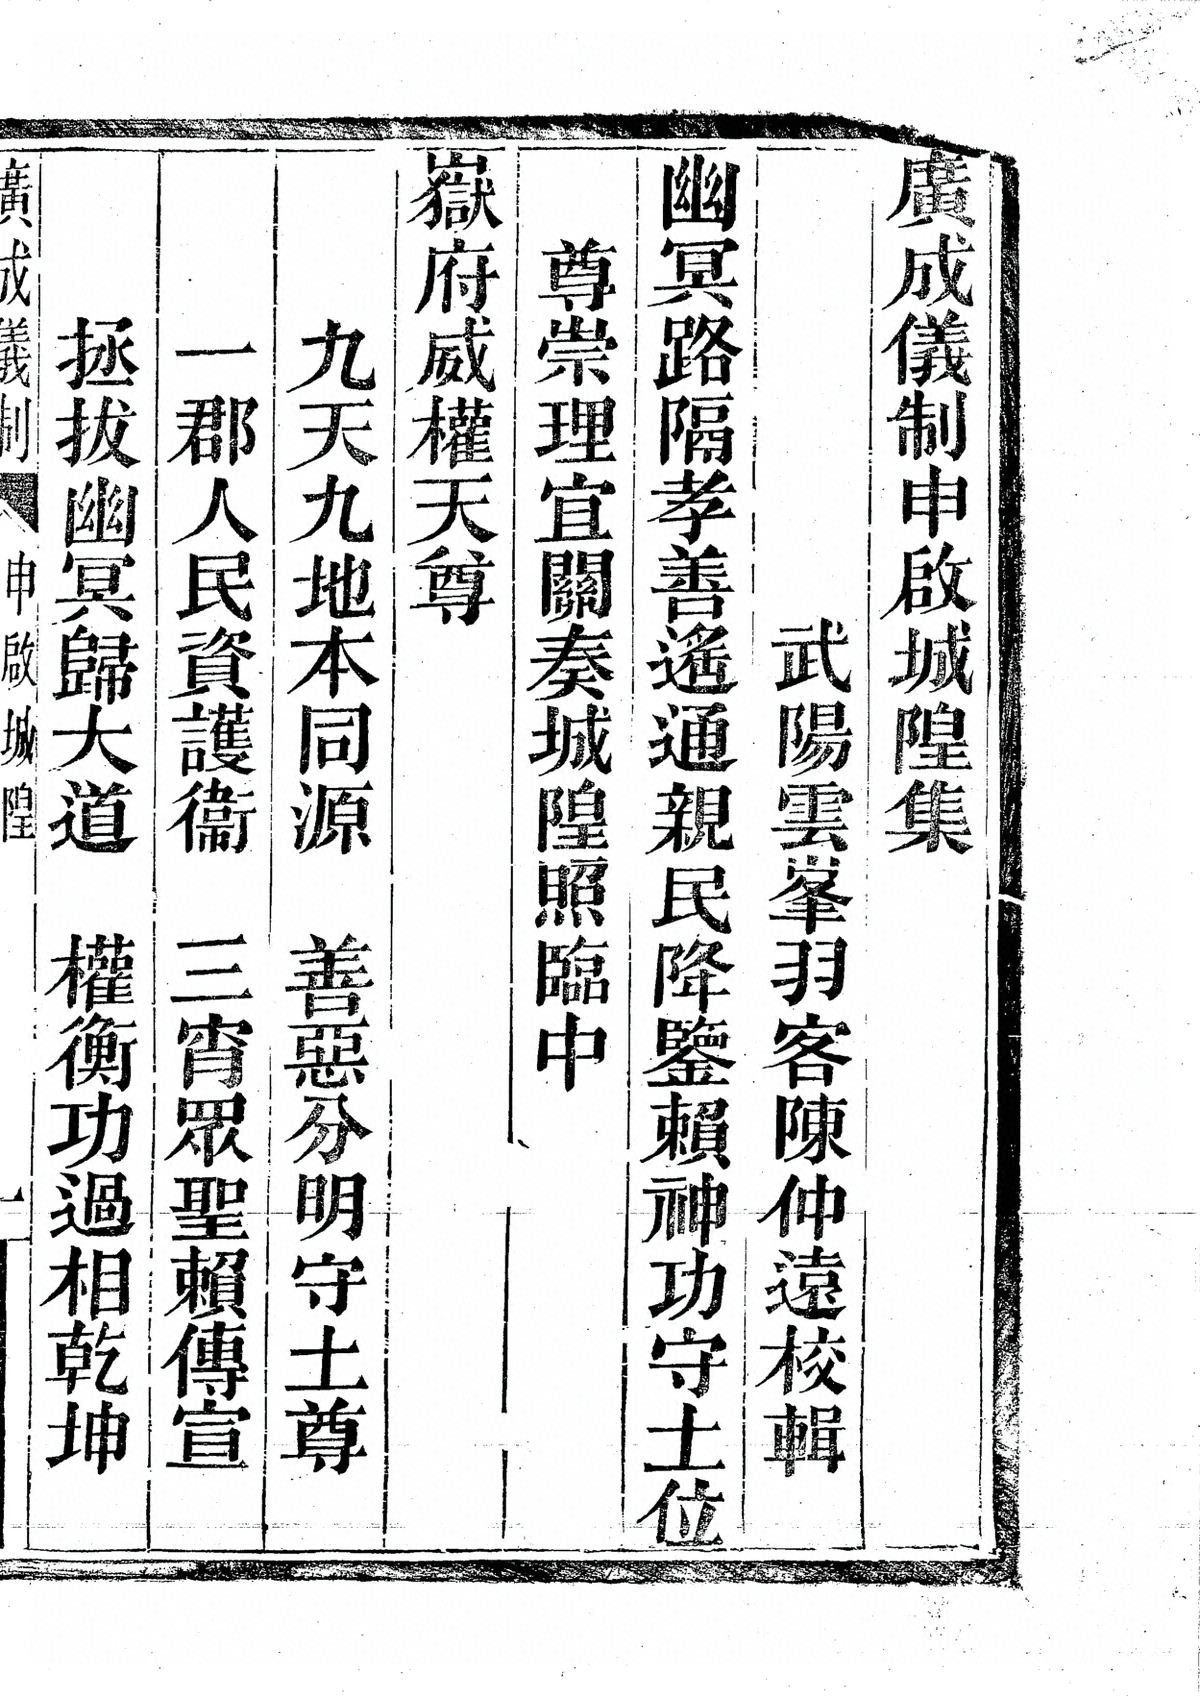 廣成儀制申啟城隍集
武陽雲峯羽客陳仲遠校輯
幽冥路隔孝善遙通親民降鑒賴神功守土位
尊崇理宜關奏城隍照臨中
嶽府威權天尊
九天九地本同源　善惡分明守土尊
一郡人民資護衞　三宵眾聖賴傳宣
拯拔幽冥歸大道　權衡功過相乾坤
廣成儀制　申啟城隍　一